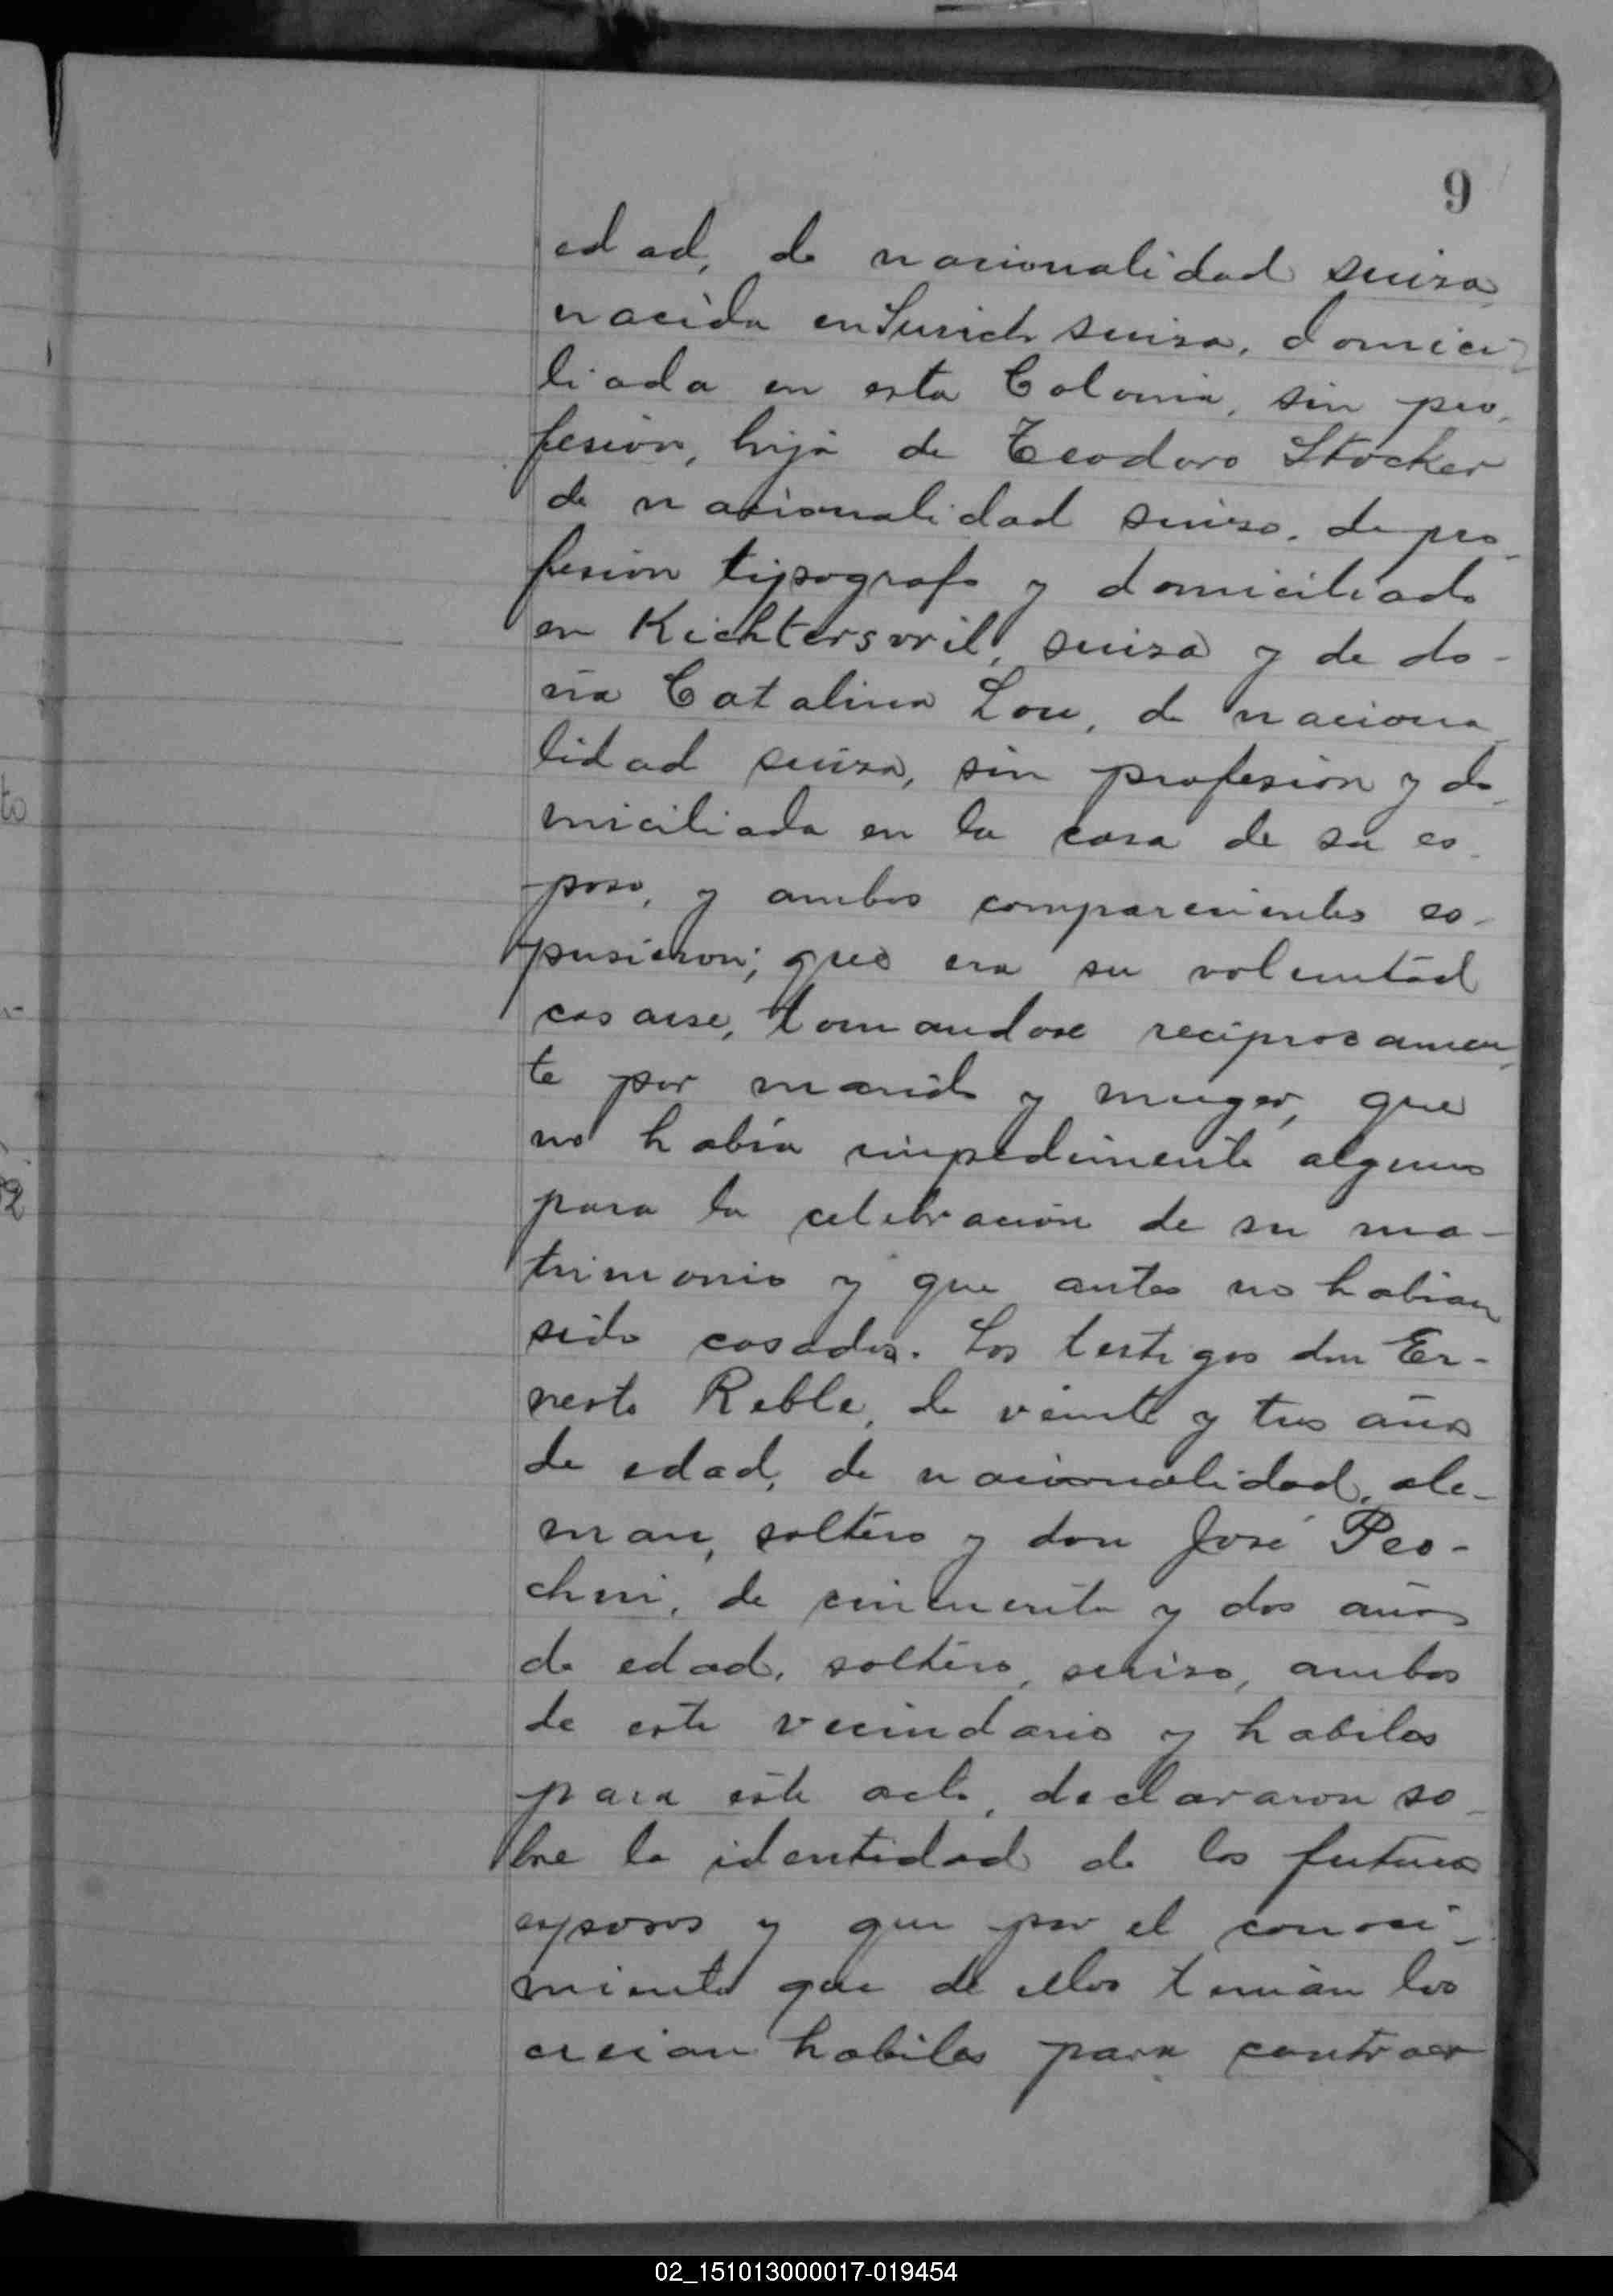 9
edad, de nacionalidad suiza,
nacida en Surich suiza, domici-
liada en esta Colonia, sin pro-
fesion, hija de Teodoro Stocker
de nacionalidad suizo, de pro-
fesion tipografo y domiciliado
en Richtersvril, suiza y de do-
ña Catalina Lou, de naciona-
lidad suiza, sin profesion y do-
miciliada en la casa de su es-
poso, y ambos comparecientes es-
pusieron; que era su voluntad
casarse, tomandose reciprocamen-
te por marido y muger, que
no habia impedimento alguno
para la celebracion de su ma-
trimonio y que antes no habian
sido casados. Los testigos don Er-
nesto Reble, de veinte y tres años
de edad, de nacionalidad, ale-
man, soltero y don José Peo-
chni, de cincuenta y dos años
de edad, soltero, suizo, ambos
de este vecindario y habiles
para este acto, declararon so-
bre la identidad de los futuros
esposos y que por el conoci-
miento que de ellos tenian los
creian habiles para contraer
to
2
02_151013000017-019454